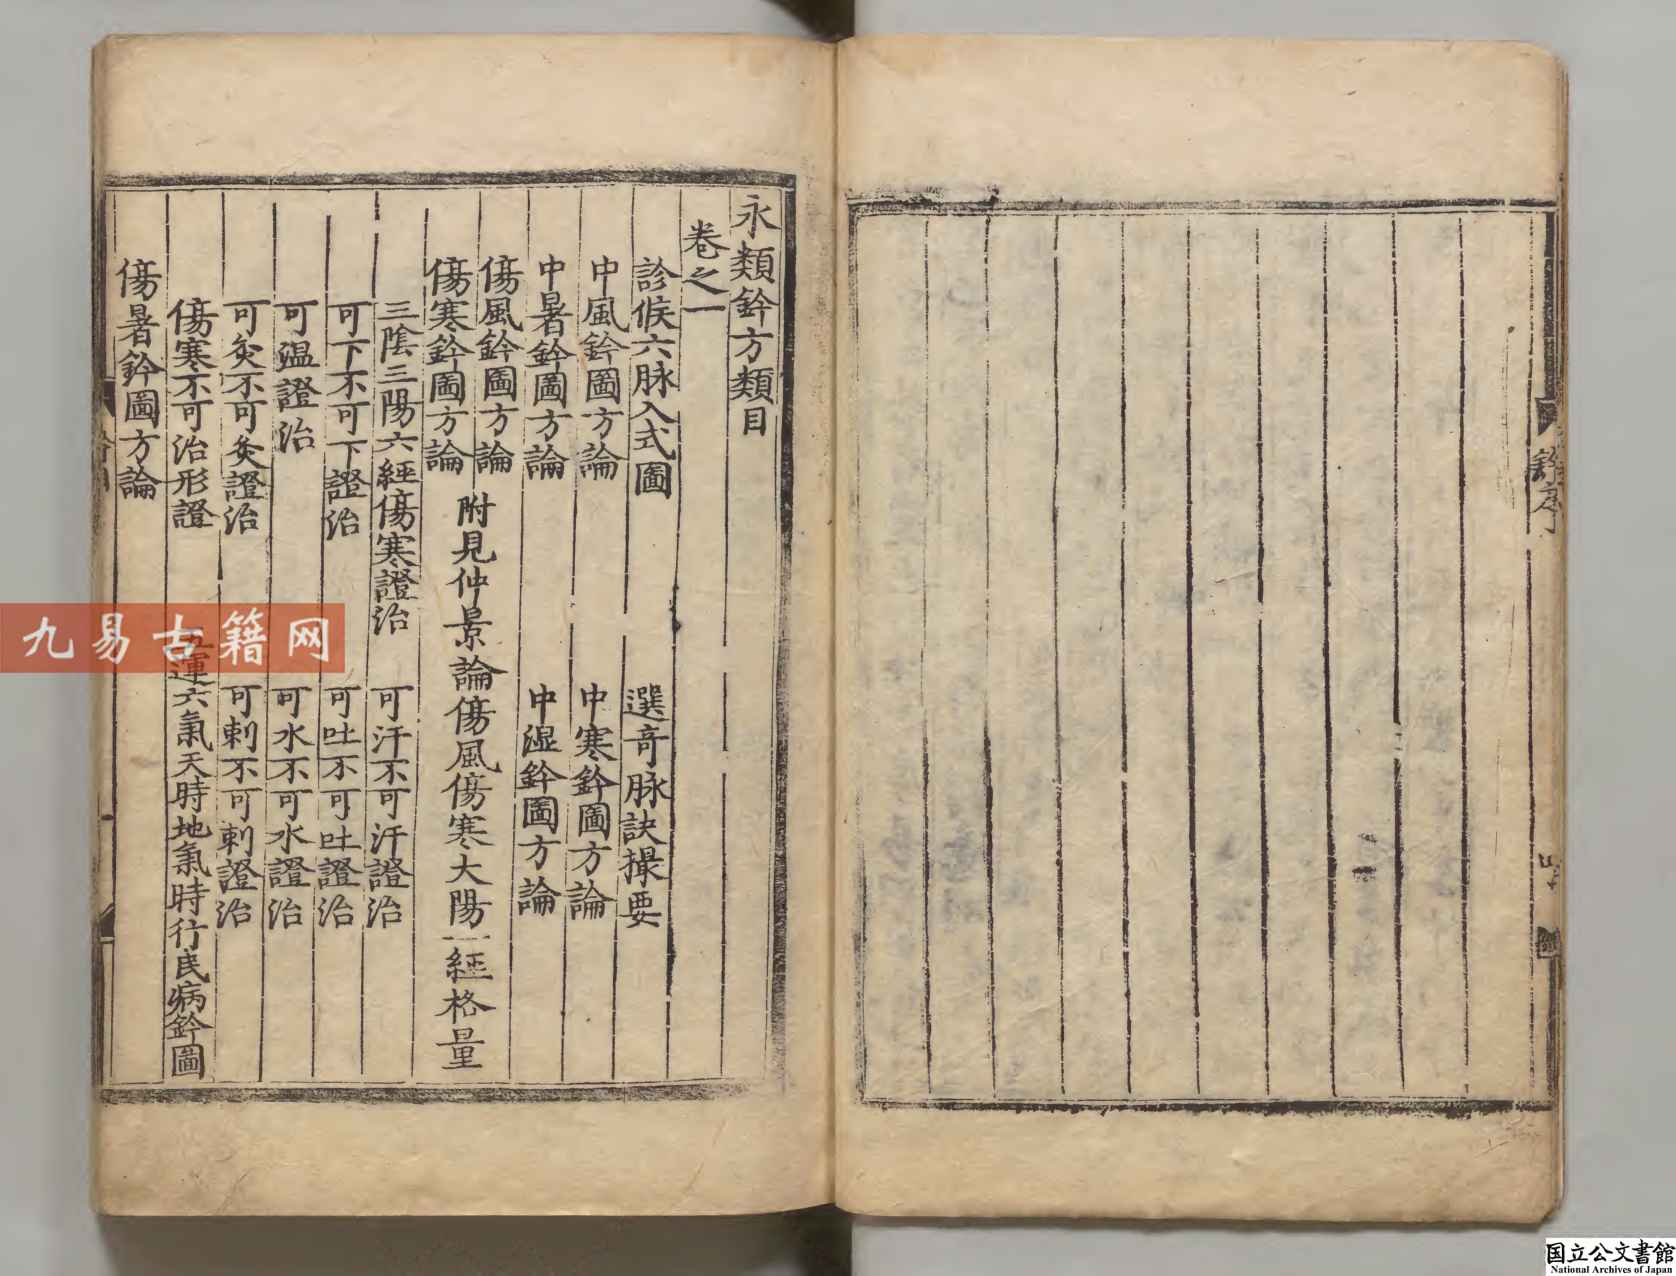 鈐序
永類鈐方類目
卷之一
診候六脉入式圖　選奇脉訣撮要
中風鈐圖方論　中寒鈐圖方論
中暑鈐圖方論　中濕鈐圖方論
傷風鈐圖方論
附見仲景論傷風傷寒大陽一經格量
傷寒鈐圖方論
三陰三陽六經傷寒證治　可汗不可汗證治
可下不可下證治　可吐不可吐證治
可溫證治　可水不可水證治
可灸不可灸證治　可刺不可刺證治
傷寒不可治形證　五運六氣天時地氣時行民病鈐圖
傷暑鈐圖方論
九易古籍网
国立公文書館
National Archives of Japan